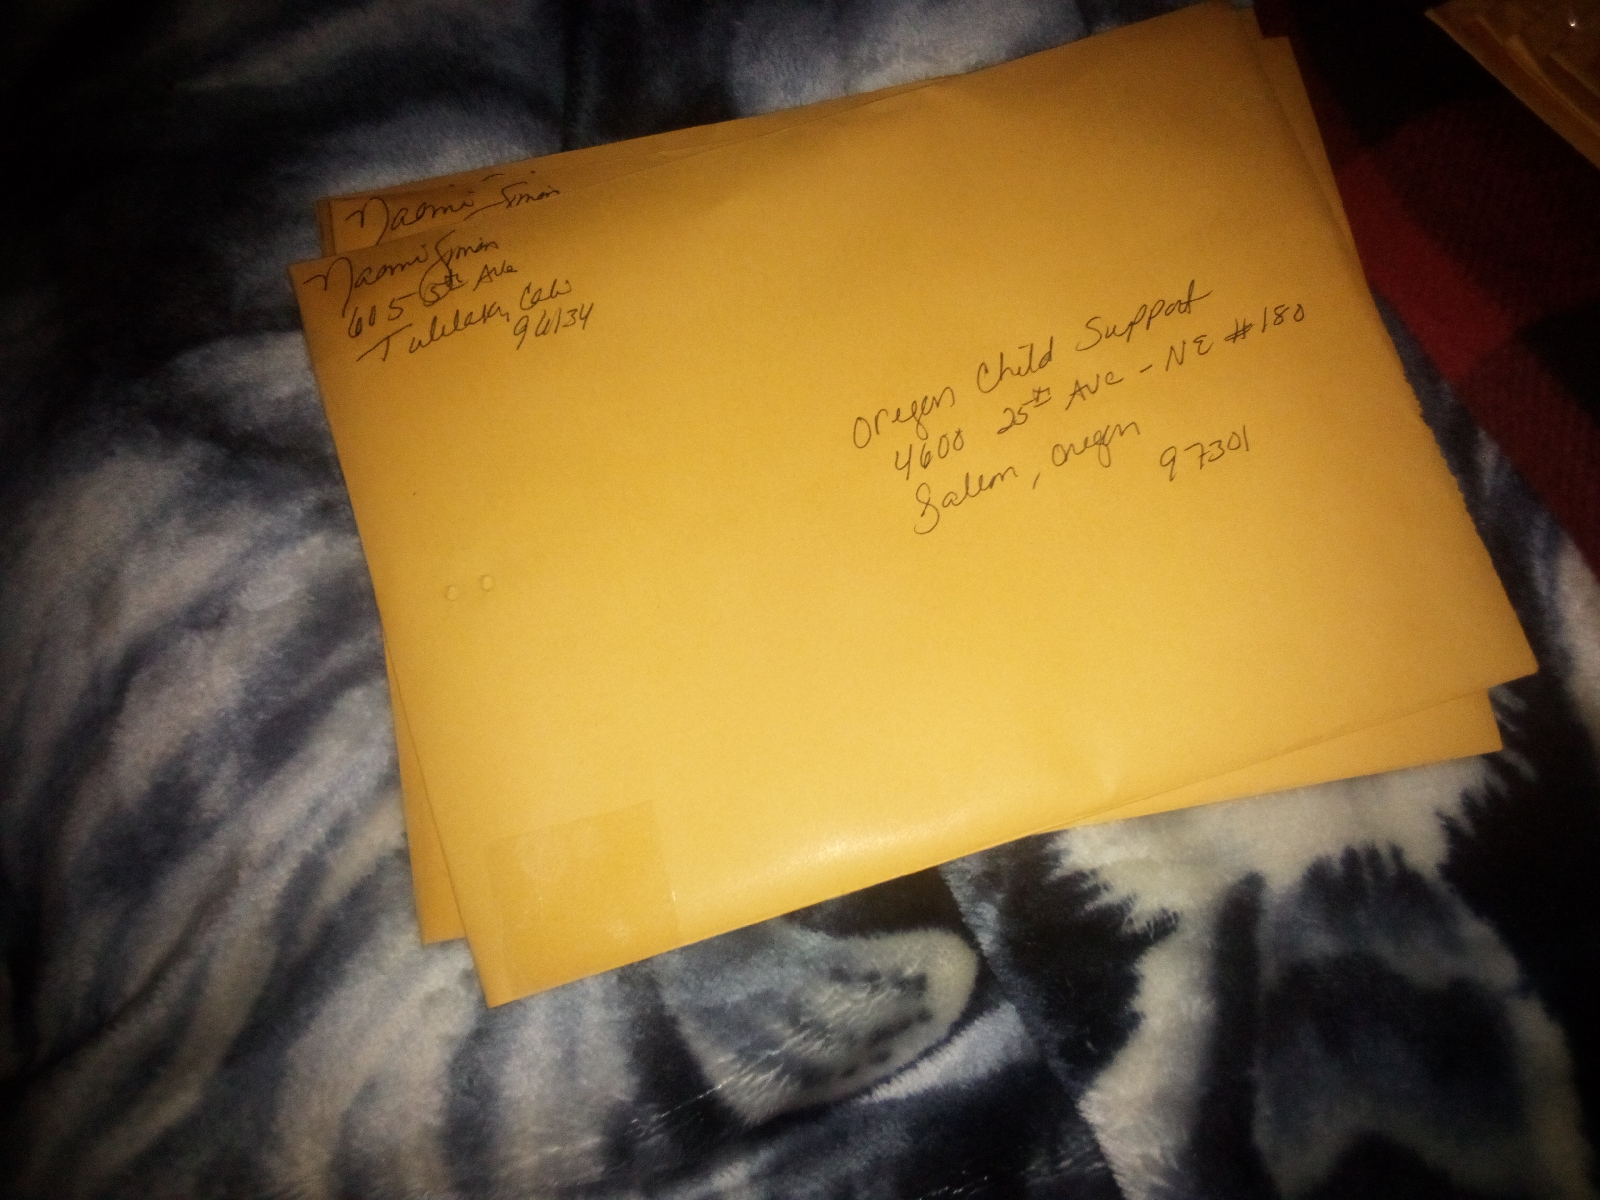 Naomi Simon
Naomi Simon
605 5th Ave
Tulelake, Calif
96134
Oregon Child Support
4600 25th Ave - NE #180
Salem, Oregon
97301